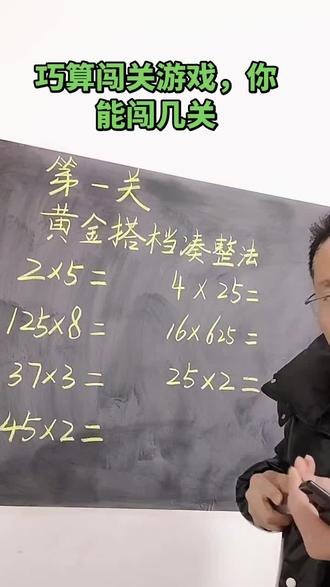 巧算闯关游戏，你
能闯几关
第一关
黄金搭档凑整法
2×5=
4×25=
125×8=
16×625=
37×3=
25×2=
45×2=